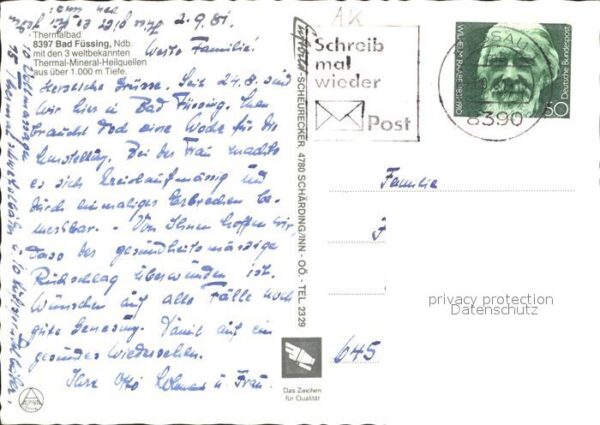 2.9.81.
Thermalbad
8397 Bad Füssing, Ndb.
mit den 3 weltbekannten
Thermal-Mineral-Heilquellen
aus über 1.000 m Tiefe.
Werte Familie!
Herzliche Grüsse. Seit 24.8. sind
wir hier in Bad Füssing. Man
braucht doch eine Woche für die
Umstellung. Bei der Frau machte
es sich kreislaufmässig und
durch einmaliges Erbrechen be-
merkbar. - Von Ihnen hoffen wir,
dass der gesundheitsmässige
Rückschlag überwunden ist.
Wünschen auf alle Fälle noch
gute Genesung. Damit auf ein
gesundes Wiedersehen.
Ihre Otto u. Frau.
SCHEURECKER, 4780 SCHÄRDING/INN - OÖ. - TEL. 2329
Das Zeichen
für Qualität
AK
Schreib
mal
wieder
Post
8390
WILHELM RAABE 1831-1910
Deutsche Bundespost
50
Familie
privacy protection
Datenschutz
645